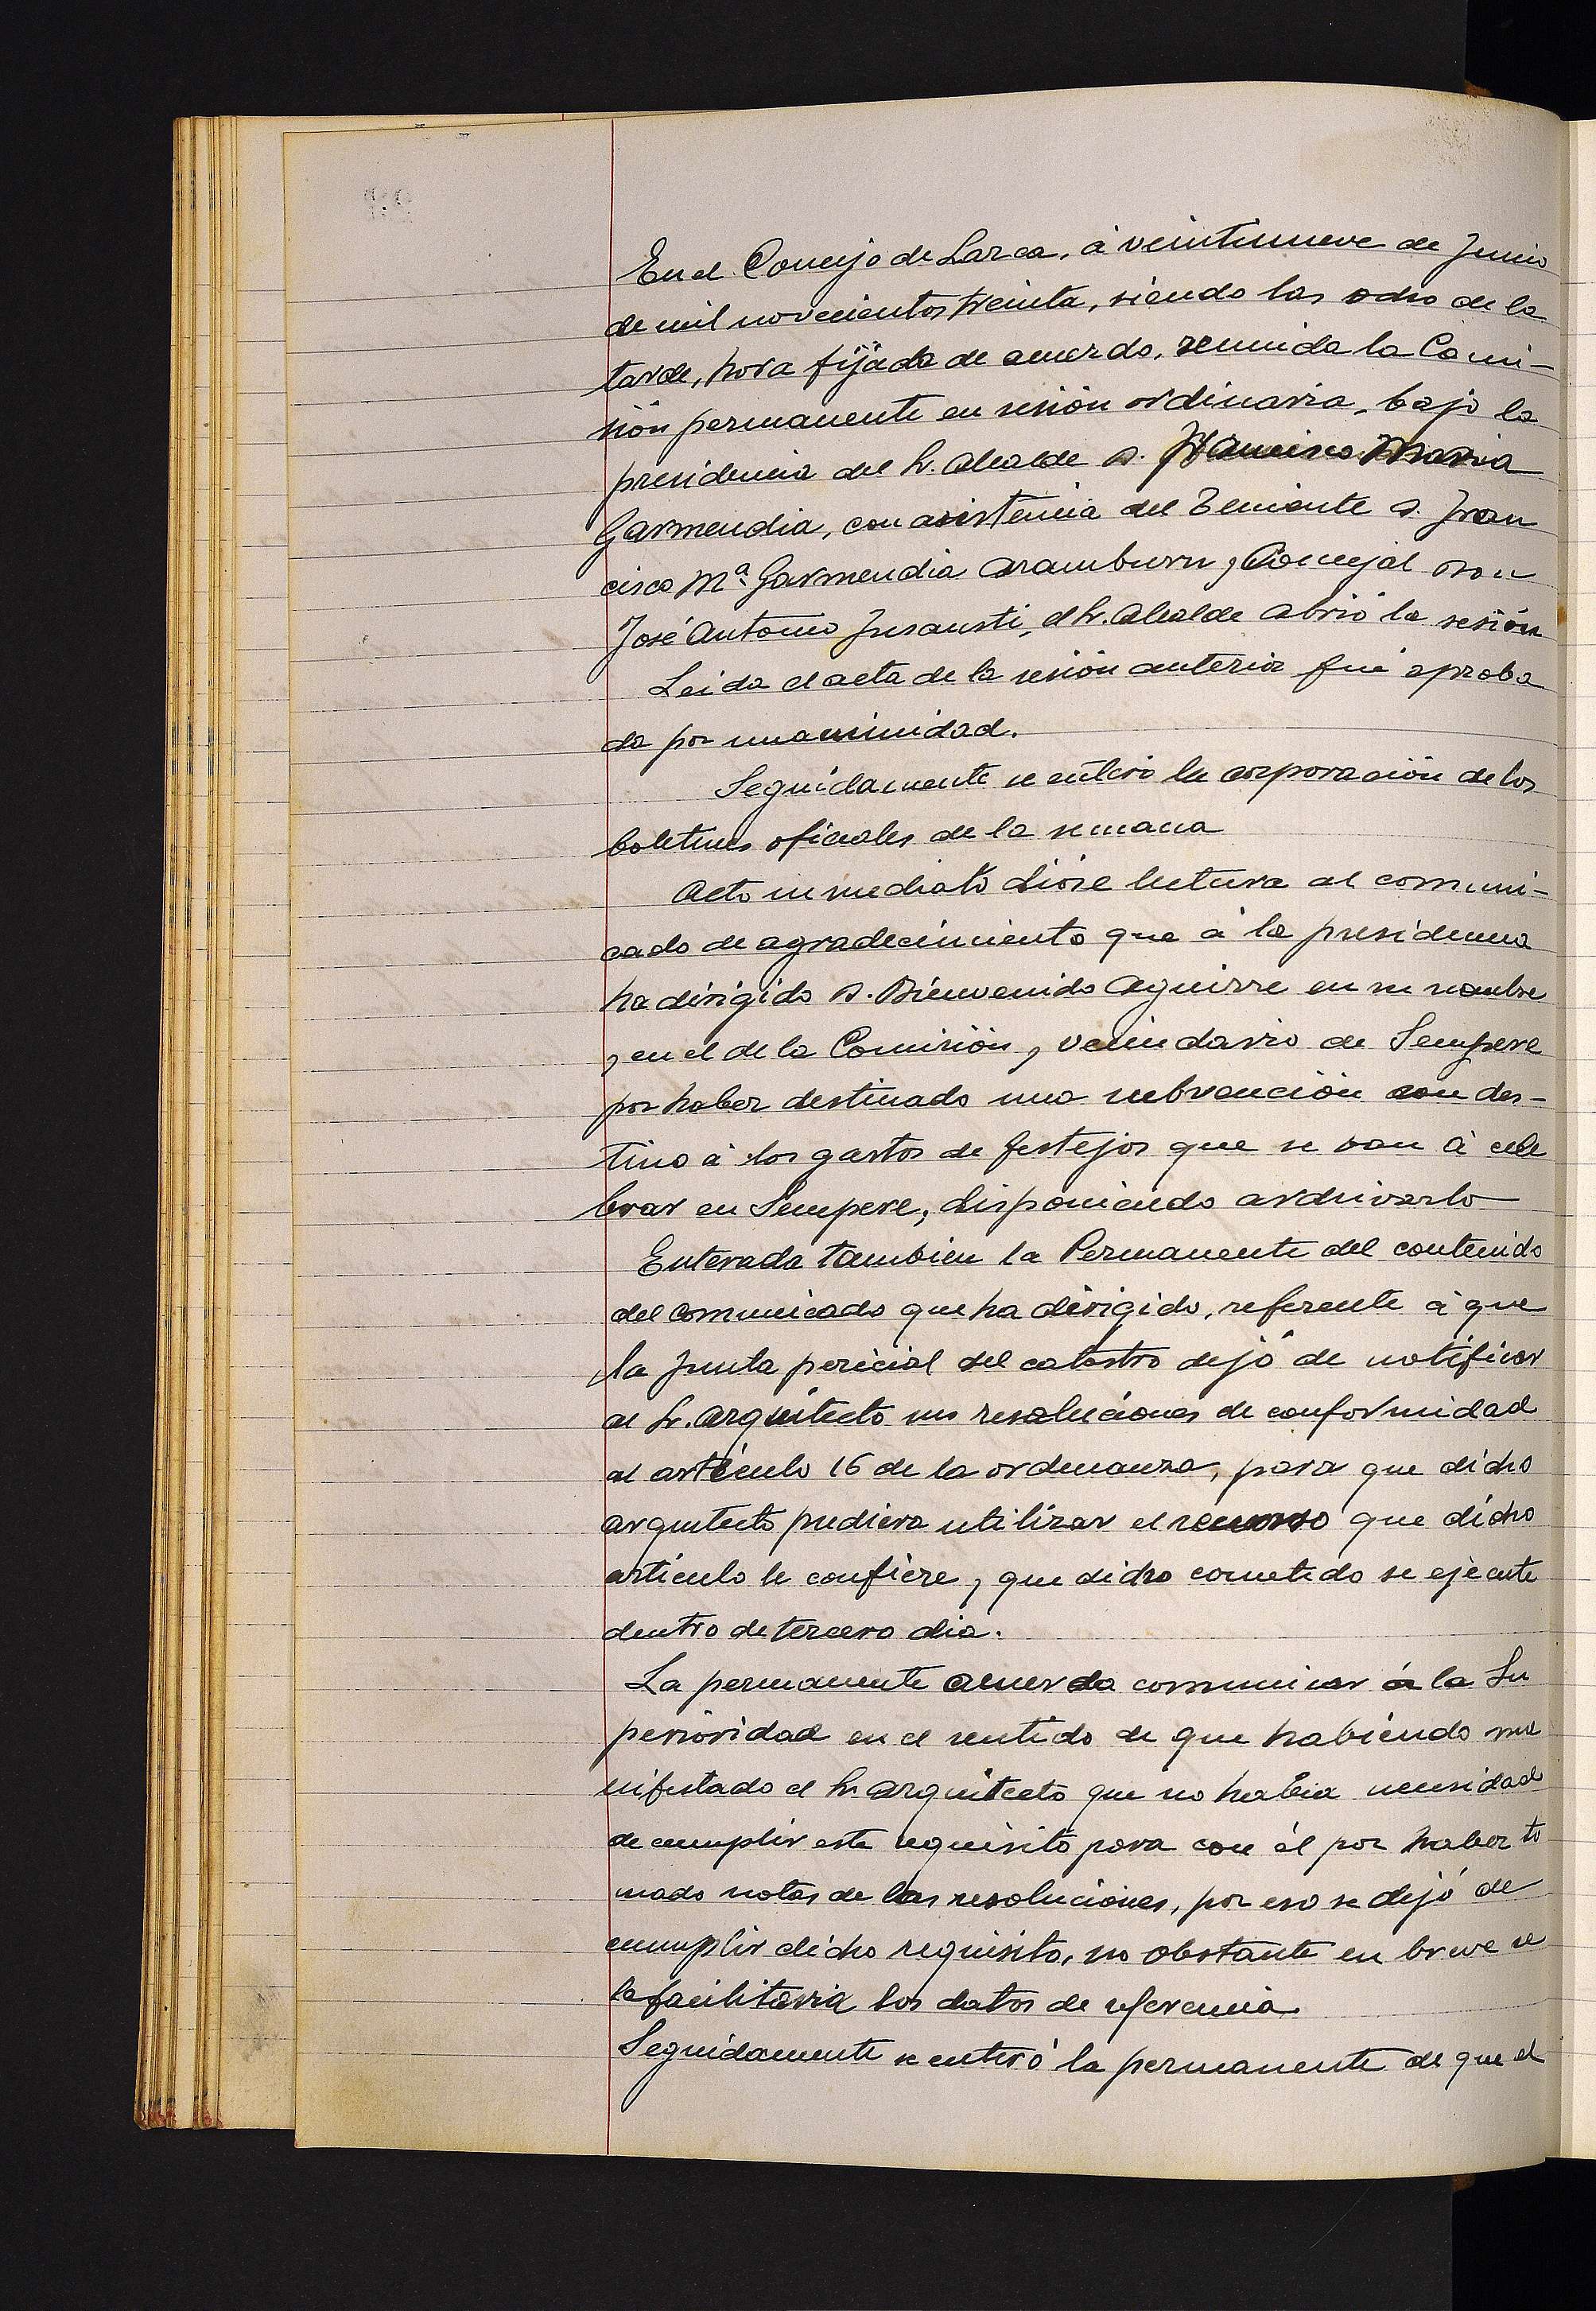 En el Concejo de Larca, á veintinueve de Junio
de mil novecientos treinta, siendo las ocho de la
tarde, hora fijada de acuerdo, reunida la Comi-
sión permanente en sesión ordinaria, bajo la
presidencia del Sr. Alcalde D. Francisco Maria
Garmendia, con asistencia del Teniente D. Fran
cisco Mª Garmendia Aramburu y Concejal Don
José Antonio Insausti, el Sr. Alcalde abrió la sesión
Leida el acta de la sesión anterior fué aproba
da por unanimidad.
Seguidamente se enteró la corporación de los
boletines oficiales de la semana
Acto inmediato dióse lectura al comuni-
cado de agradecimiento que á la presidencia
ha dirigido D. Bienvenido Aguirre en su nombre
y en el de la Comisión y vecindario de Sempere
por haber destinado una subvención con des-
tino á los gastos de festejos que se van á cele
brar en Sempere, disponiendo archivarlo
Enterada tambien la Permanente del contenido
del comunicado que ha dirigido, referente á que
la Junta pericial del catastro dejó de notificar
al Sr. Arquitecto sus resoluciones de conformidad
al artículo 16 de la ordenanza, para que dicho
arquitecto pudiera utilizar el recurso que dicho
artículo le confiere, y que dicho cometido se ejecute
dentro de tercero dia.
La permanente acuerda comunicar á la Su
perioridad en el sentido de que habiendo ma
nifestado el Sr. Arquitecto que no habia necesidad
de cumplir este requisito para con él por haber to
mado notas de las resoluciones, por eso se dejó de
cumplir dicho requisito, no obstante en breve se
le facilitaria los datos de referencia.
Seguidamente se enteró la permanente de que el